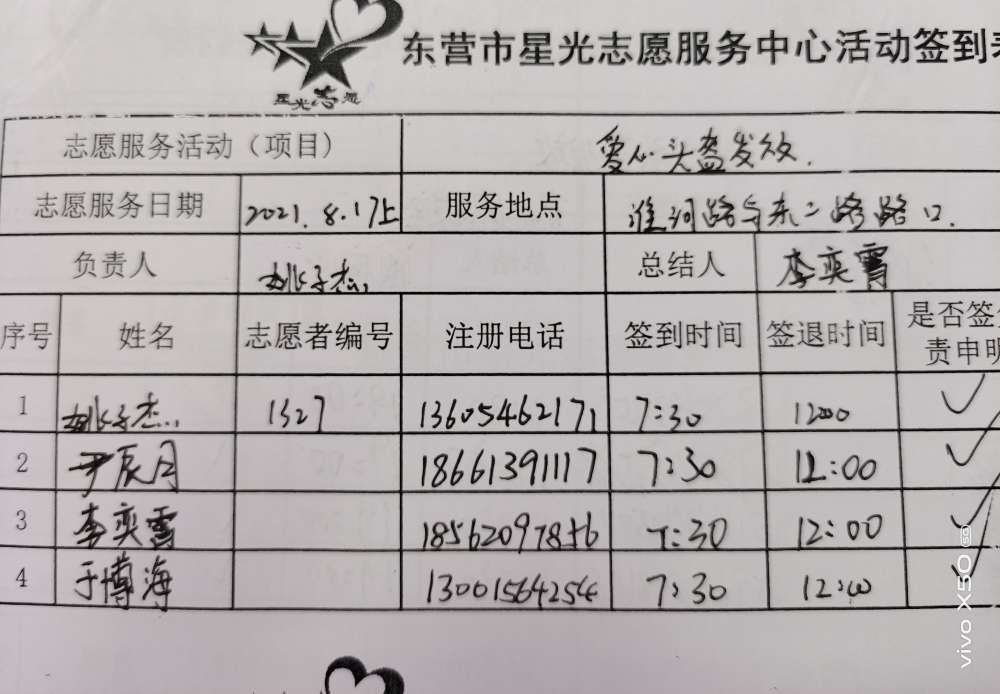 东营市星光志愿服务中心活动签到表
星光志愿
志愿服务活动（项目） 爱心头盔发放.
志愿服务日期 2021.8.17上 服务地点 淮河路与东二路路口.
负责人 姚子杰 总结人 李奕霄
序号 姓名 志愿者编号 注册电话 签到时间 签退时间 是否签
责申明
1 姚子杰 1327 13605462171 7:30 1200 ✓
2 尹辰月 18661391117 7:30 12:00 ✓
3 李奕霄 18562097856 7:30 12:00 ✓
4 于博海 13001564254 7:30 12:00 ✓
vivo X50 5G